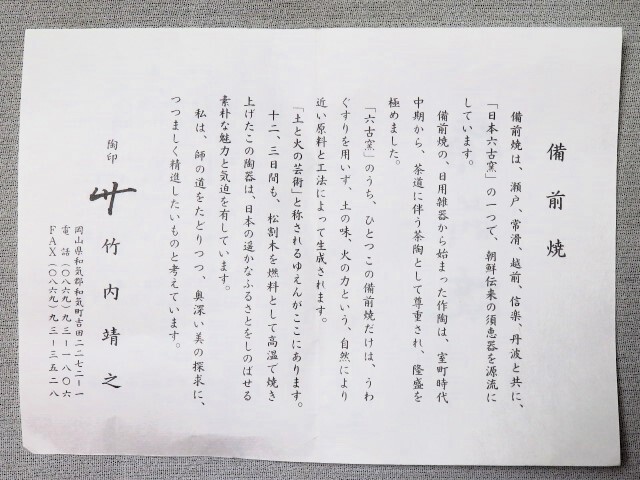 備前焼
備前焼は、瀬戸、常滑、越前、信楽、丹波と共に、
「日本六古窯」の一つで、朝鮮伝来の須恵器を源流に
しています。
備前焼の、日用雑器から始まった作陶は、室町時代
中期から、茶道に伴う茶陶として尊重され、隆盛を
極めました。
「六古窯」のうち、ひとつこの備前焼だけは、うわ
ぐすりを用いず、土の味、火の力という、自然により
近い原料と工法によって生成されます。
「土と火の芸術」と称されるゆえんがここにあります。
十二、三日間も、松割木を燃料として高温で焼き
上げたこの陶器は、日本の遥かなふるさとをしのばせる
素朴な魅力と気迫を有しています。
私は、師の道をたどりつつ、奥深い美の探求に、
つつましく精進したいものと考えています。
陶印 竹内靖之
岡山県和気郡和気町吉田二二七二-一
電話(〇八六九)九三-一八〇六
FAX(〇八六九)九三-三五二八